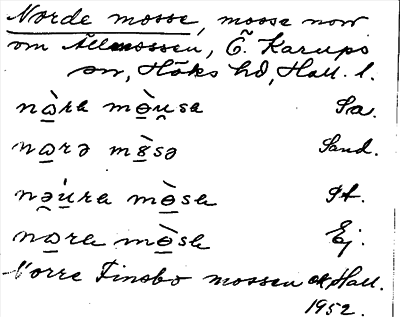 Norde mosse, mosse now
om Ällmossen, Ö. Karups
sn, Höks hd, Hall. l.
nò̲ra mò̲u̯sa Sa.
no̲rə mò̲sə Sand.
nə̯ú̲ra mò̲sa
no̲ra mò̲sa Ej.
Norre Finsbo mossen Hall.
1952.